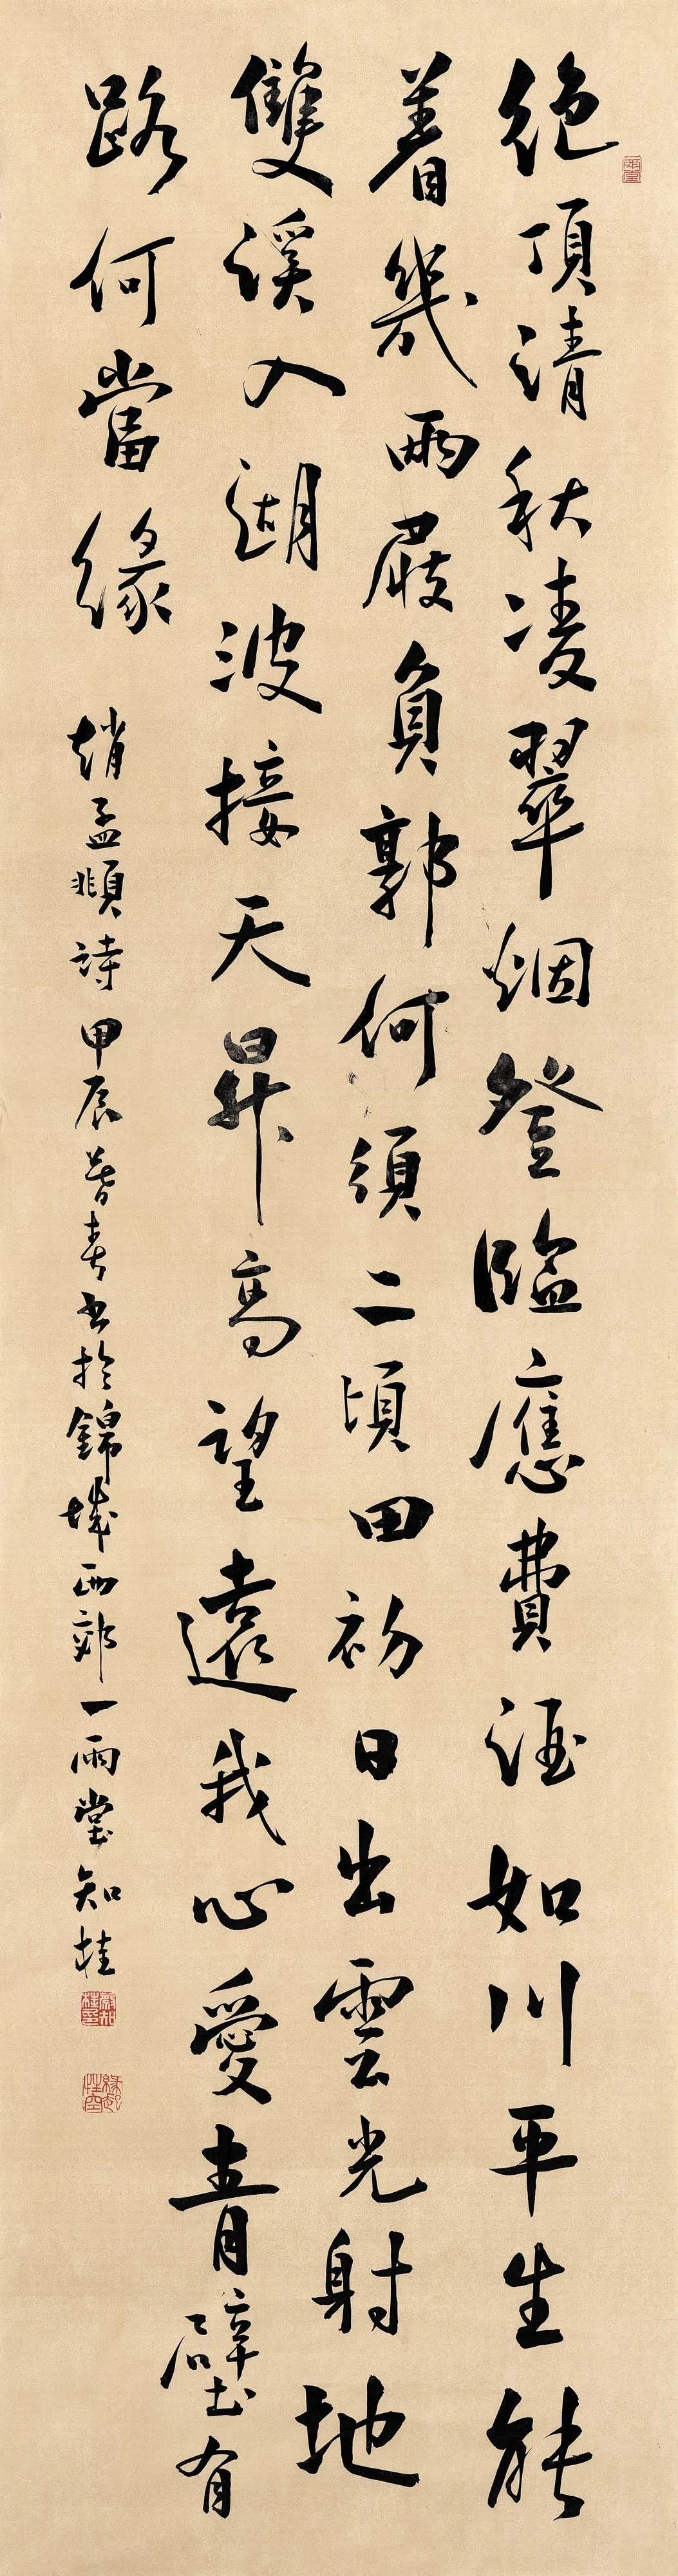 絶頂清秋凌翠烟登臨應費酒如川平生能
着幾兩屐負郭何須二頃田初日出雲光射地
雙溪入湖波接天昇高望遠我心愛青壁有
路何當緣
趙孟頫詩甲辰暮春書於錦城西郊一雨堂知桂